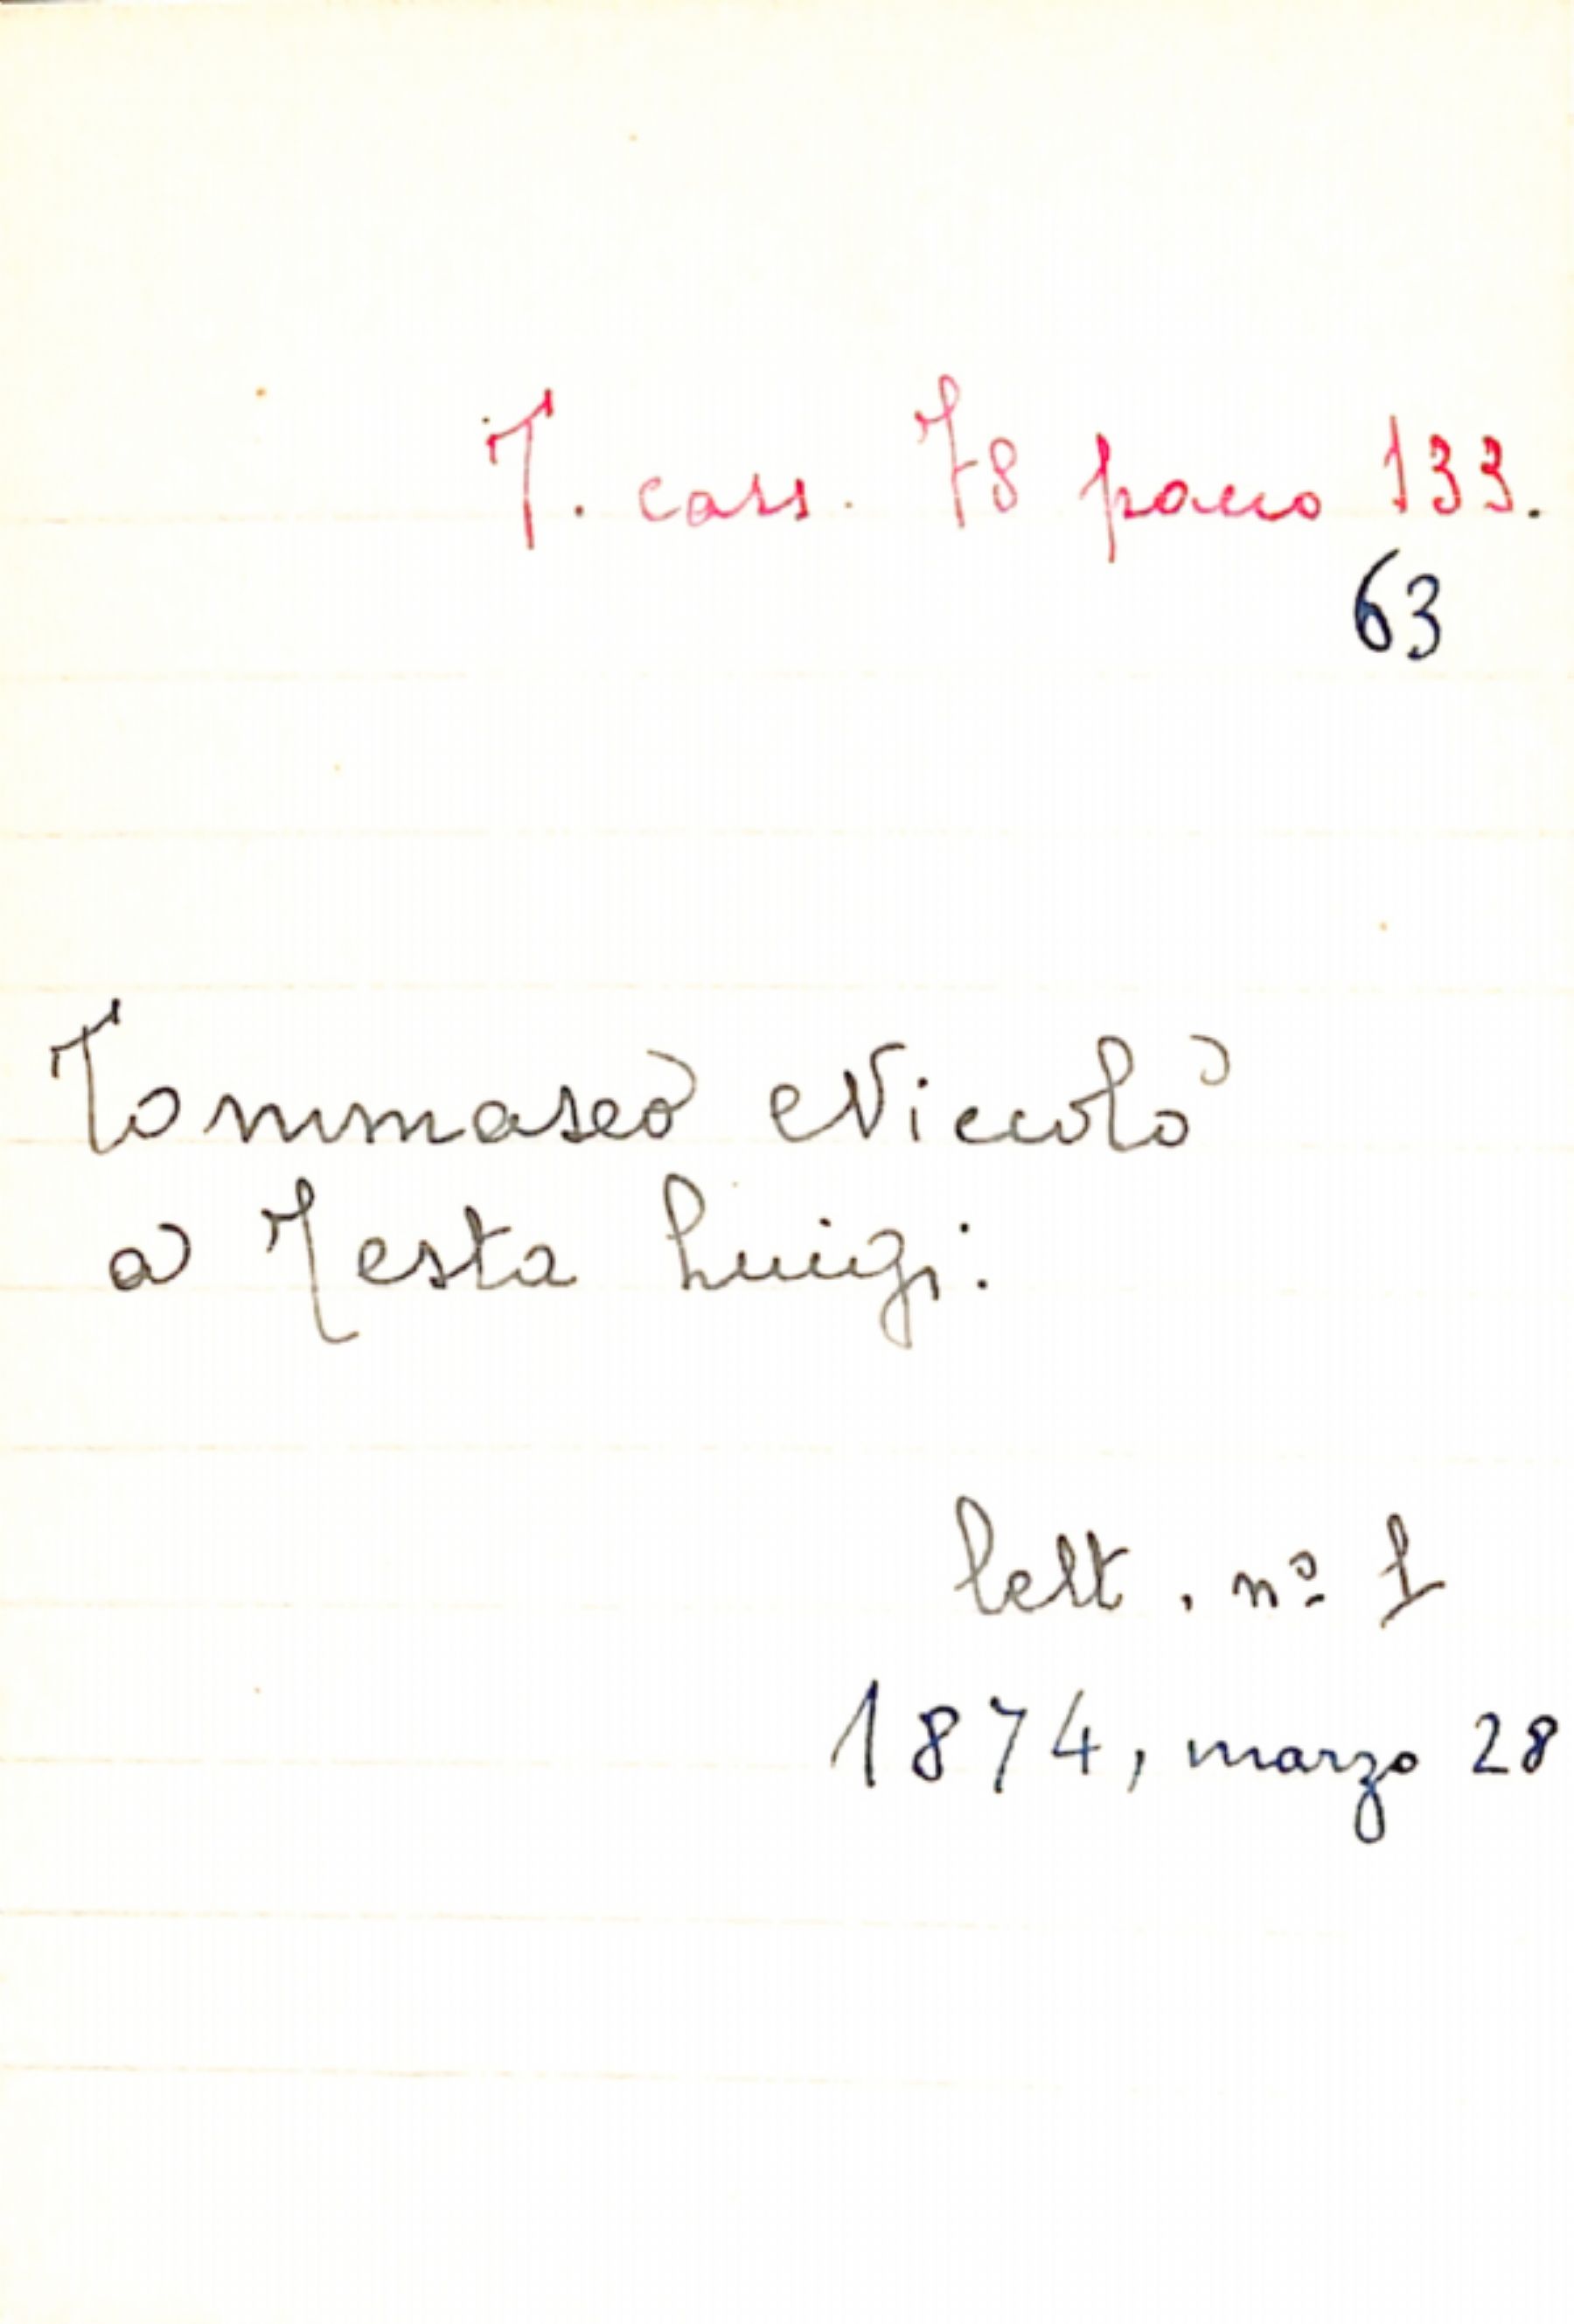 T. cass. 78 pacco 133.
63
Tommaseo Niccolò
a Testa Luigi:
lett. nº 1
1874, marzo 28